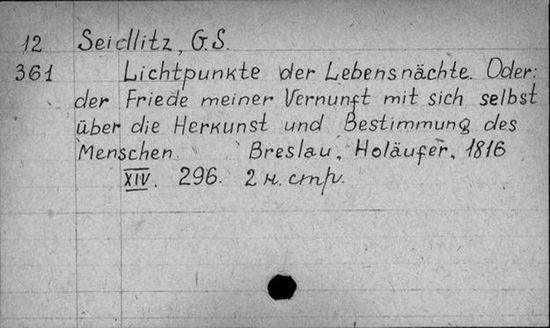 12 Seidlitz, G.S.
361 Lichtpunkte der Lebensnächte. Oder:
der Friede meiner Vernunft mit sich selbst
über die Herkunst und Bestimmung des
Menschen. Breslau, Holäufer, 1816
XIV. 296. 2 н. стр.